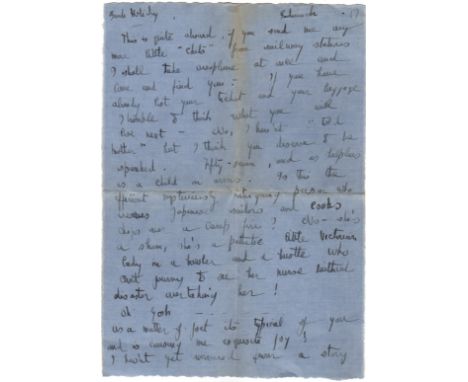 This is quite absurd. If you send me any
more little "chits" from railway stations
I shall take aeroplane at once and
come and find you! If you have
already lost your ticket and your luggage
I tremble to think what you will
lose next — No, I haven't "told
mother" but I think you deserve to be
spanked. Fifty-seven, and as helpless
as a child in arms. Is this the
efficient mysteriously intriguing person who
nurses Japanese sailors and cooks
chops over a camp fire? No — she's
a sham, she's a pathetic little Victorian
lady in a bustle and a who
can't journey to see her nurse without
disaster overtaking her!
Oh gosh —
as a matter of fact its typical of you
and is causing me exquisite joy!
I haven't yet from a story